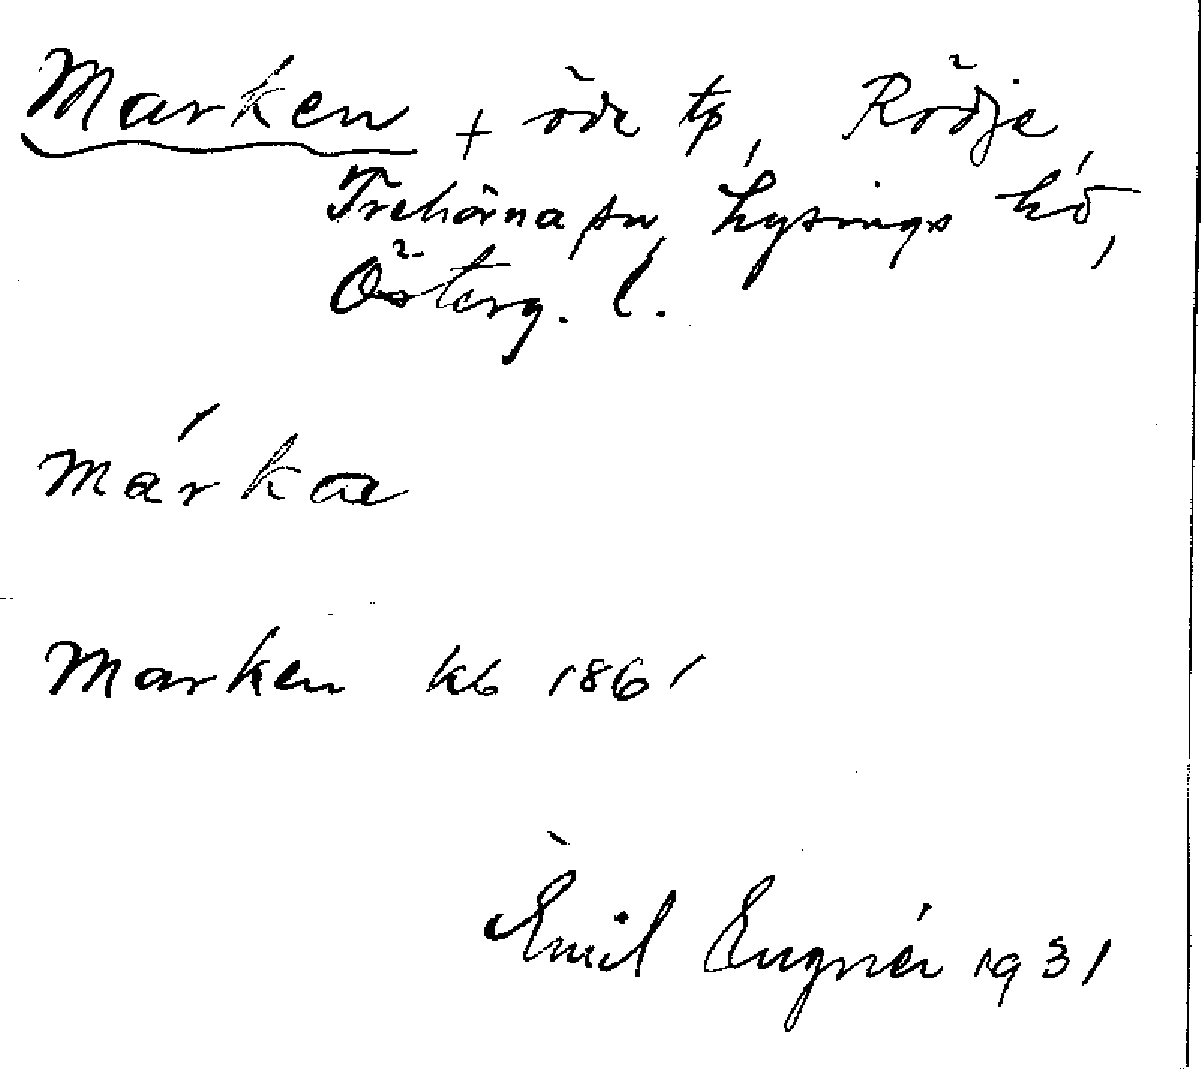 Marken + öde tp, Rödje,
Trehörna sn, Lysings hd,
Österg. l.
márka
Marken kb 1861
Emil Engnér 1931